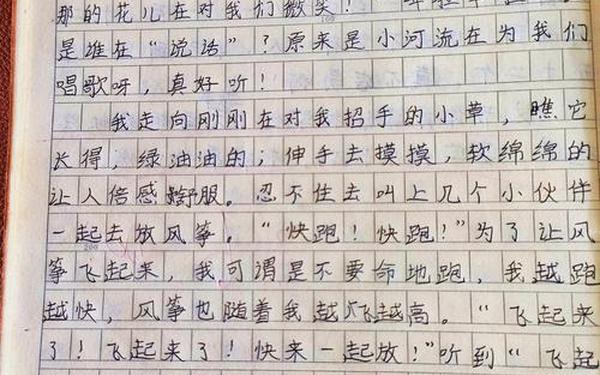 那的花儿在对我们微笑！
是谁在“说话”？原来是小河流在为我们
唱歌呀，真好听！
我走向刚刚在对我招手的小草，瞧它
长得，绿油油的；伸手去摸摸，软绵绵的
让人倍感舒服。忍不住去叫上几个小伙伴
一起去放风筝。“快跑！快跑！”为了让风
筝飞起来，我可谓是不要命地跑，我越跑
越快，风筝也随着我越飞越高。“飞起来
了！飞起来了！快来一起放！”听到“飞起